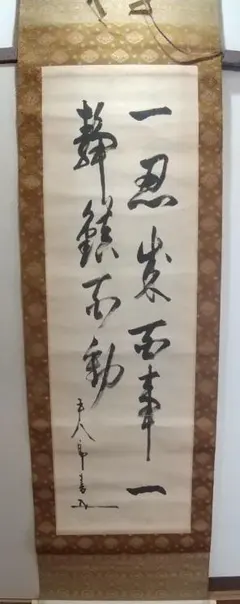 一忍成百事一
靜鎮百動